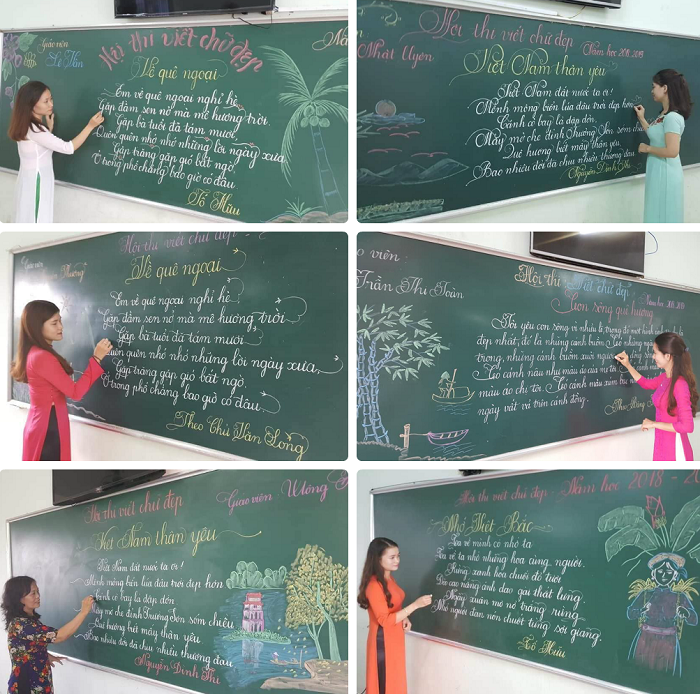 Giáo viên
Hội thi viết chữ đẹp
Nă
Về quê ngoại
Em về quê ngoại nghỉ hè
Gặp đầm sen nở mà mê hương trời.
Gặp bà tuổi đã tám mươi,
Quên quên nhớ nhớ những lời ngày xưa.
Gặp trăng gặp gió bất ngờ
Ở trong phố chẳng bao giờ có đâu
Tố Hữu
Hội thi viết chữ đẹp
Năm học 2018-2019
Nhật Uyên
Việt Nam thân yêu
Việt Nam đất nước ta ơi!
Mênh mông biển lúa đâu trời đẹp hơn
Cánh cò bay lả dập dờn,
Mây mờ che đỉnh Trường Sơn sớm
Quê hương biết mấy thân yêu
Bao nhiêu đời đã chịu nhiều thương đau
Nguyễn Đình
Hội thi viết chữ đẹp
Giáo viên
Phương
Về quê ngoại
Em về quê ngoại nghỉ hè
Gặp đầm sen nở mà mê hương trời
Gặp bà tuổi đã tám mươi
Quên quên nhớ nhớ những lời ngày xưa
Gặp trăng gặp gió bất ngờ
Ở trong phố chẳng bao giờ có đâu.
Theo Chử Văn Long
viên
Hội thi viết chữ đẹp
Trần Thu Toàn
Năm học
Con sông quê hương
Tôi yêu con sông vì nhiều lẽ trong đó một hình
đẹp nhất, đó là những cánh buồm. Có những ngày
trong, những cánh buồm xuôi ngược
Có cánh nâu như màu áo của mẹ tôi.
màu áo chị tôi. Có cánh màu xám
ngày vất vả trên cánh đồng.
Theo Băng
Hội thi viết chữ đẹp
Giáo viên
Việt Nam thân yêu
Việt Nam đất nước ta ơi!
Mênh mông biển lúa đâu trời đẹp hơn
Cánh cò bay lả dập dờn
Mây mờ che đỉnh Trường Sơn sớm chiều
Quê hương biết mấy thân yêu
Bao nhiêu đời đã chịu nhiều thương đau
Nguyễn Đình Thi
Hội thi viết chữ đẹp
Năm học 2018 - 20
Nhớ Việt Bắc
Ta về mình có nhớ ta
Ta về ta nhớ những hoa cùng người.
Rừng xanh hoa chuối đỏ tươi
Đèo cao nắng ánh dao gài thắt lưng.
Ngày xuân mơ nở trắng rừng
Nhớ người đan nón chuốt từng sợi giang.
Tố Hữu